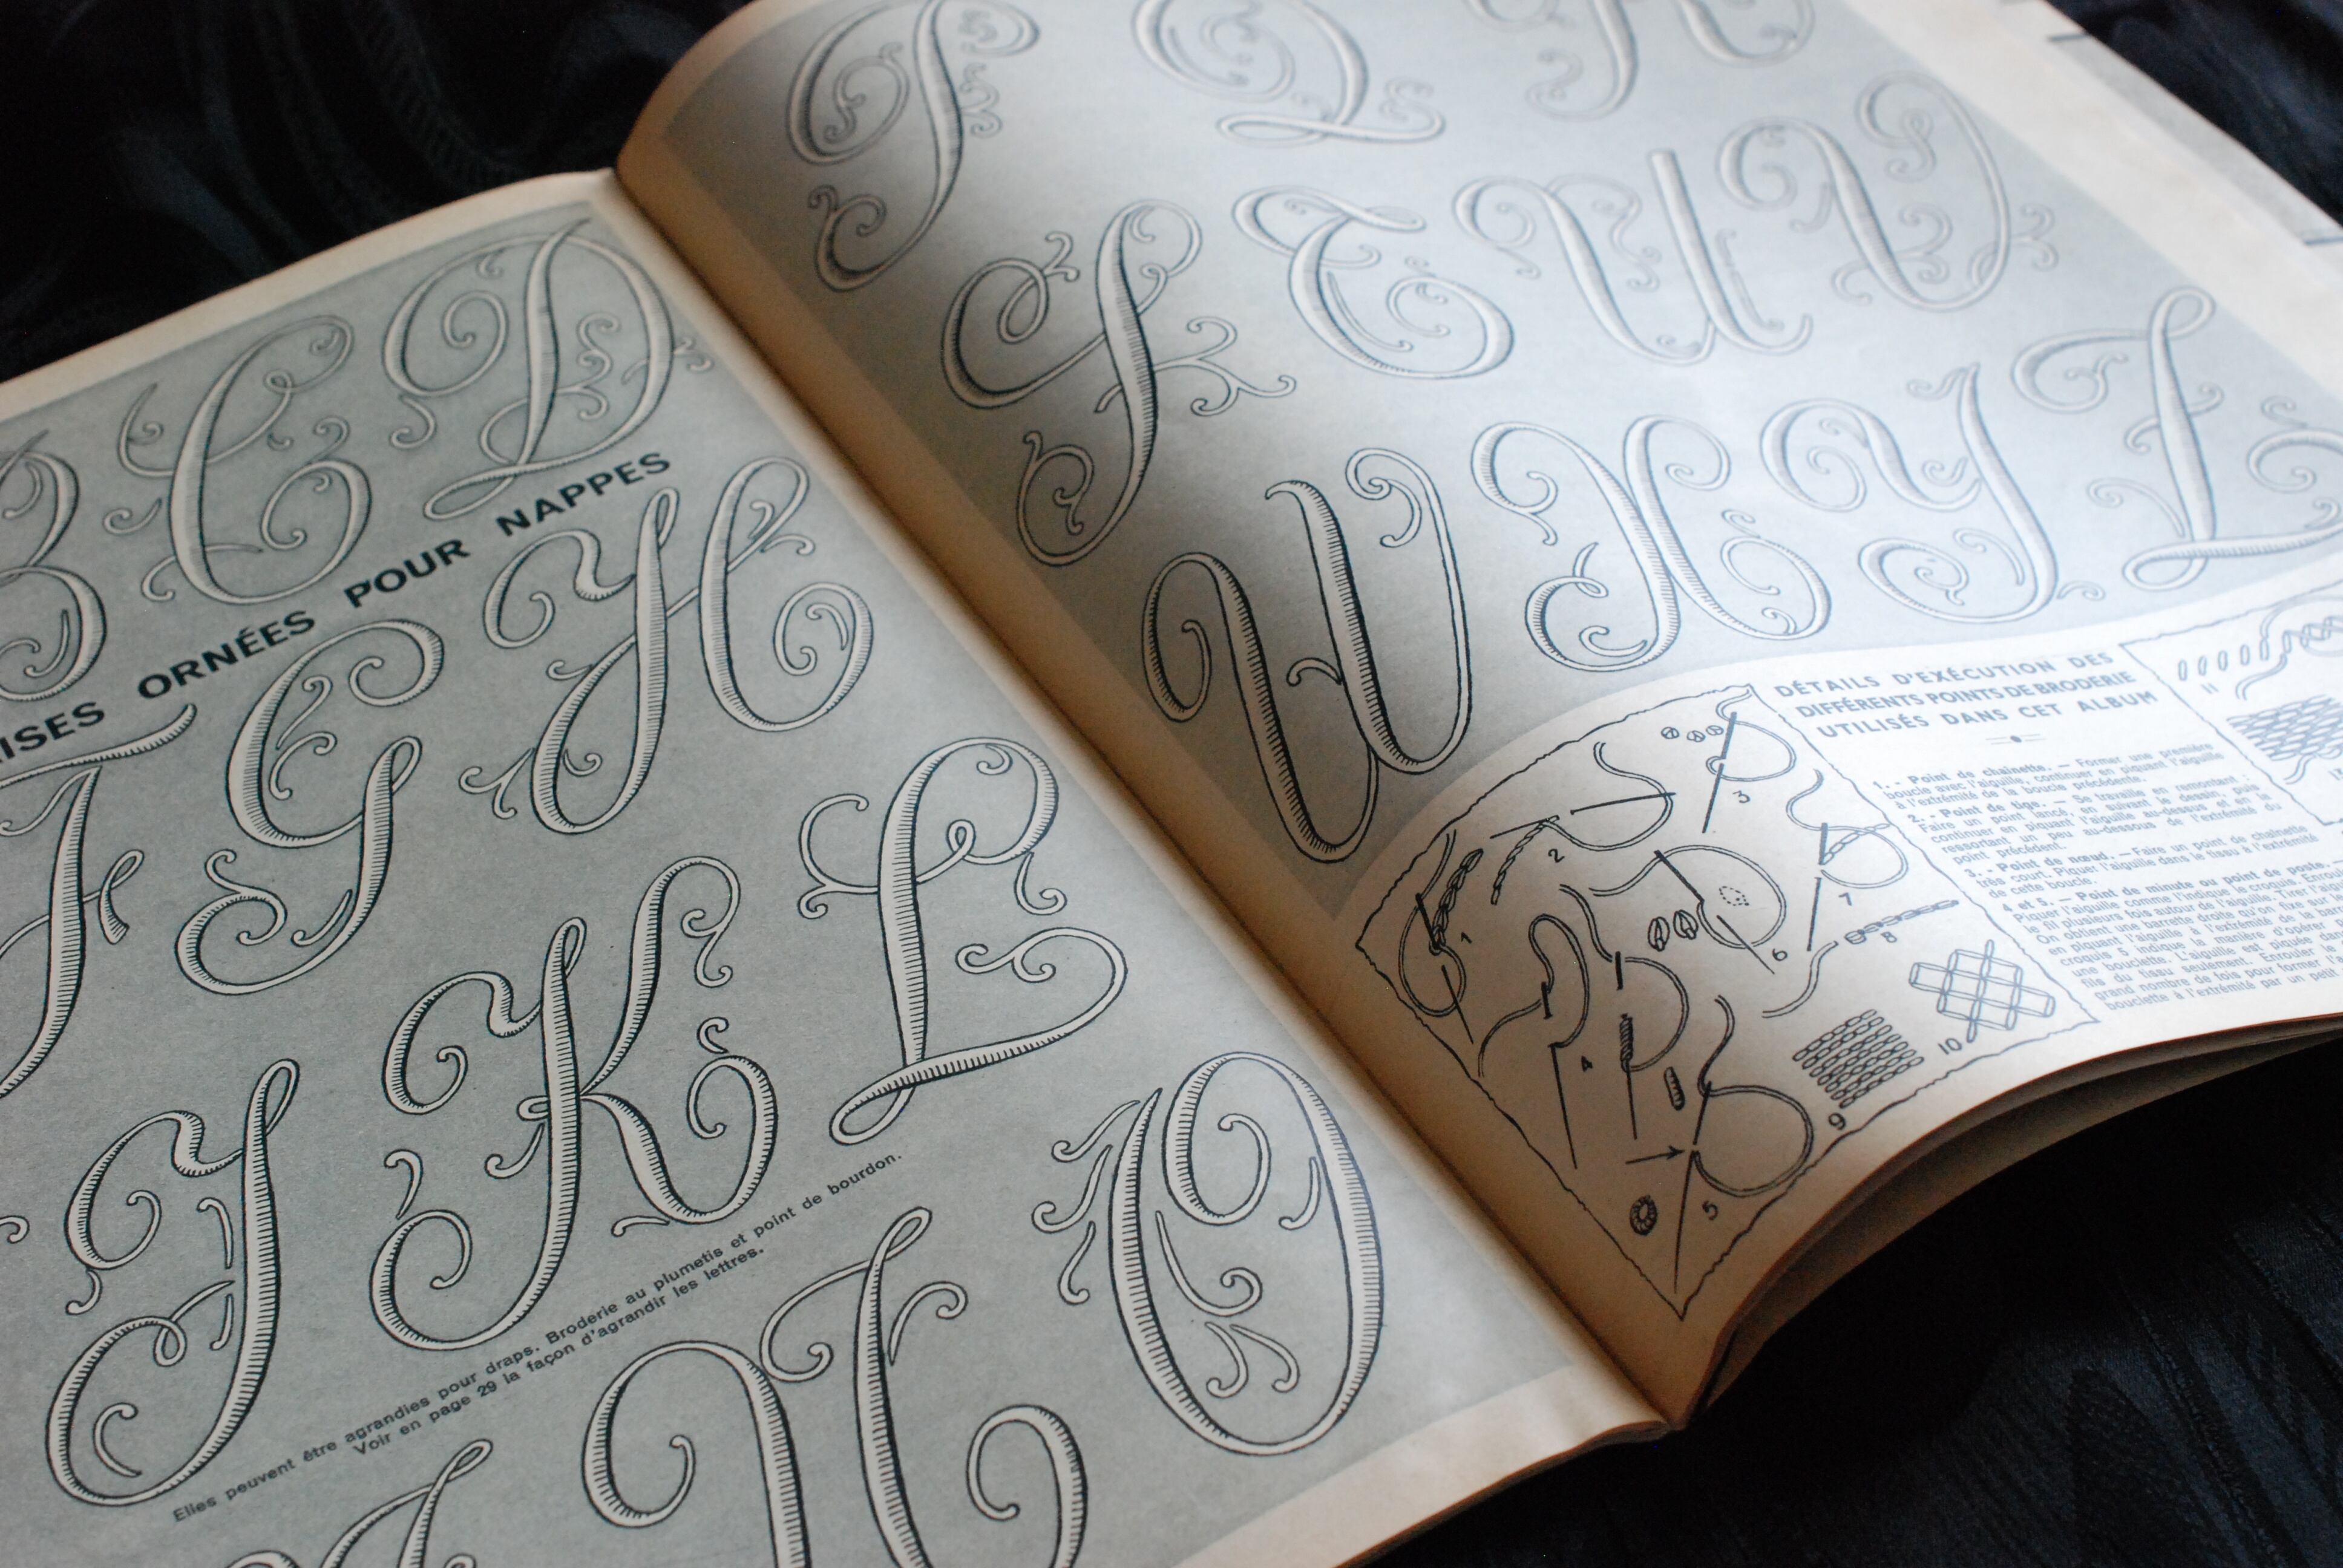 B C D
ISES ORNÉES POUR NAPPES
F G H
J K L
Elles peuvent être agrandies pour draps. Broderie au plumetis et point de bourdon.
Voir en page 29 la façon d'agrandir les lettres.
N O
P Q R
S T U V
W X Y Z
DÉTAILS D'EXÉCUTION DES
DIFFÉRENTS POINTS DE BRODERIE
UTILISÉS DANS CET ALBUM
1. - Point de chaînette. — Former une première
boucle avec l'aiguille, continuer en piquant l'aiguille
à l'extrémité de la boucle précédente.
2. - Point de tige. — Se travaille en remontant ;
Faire un point lancé, suivant le dessin, puis
continuer en piquant l'aiguille au-dessus et en
ressortant un peu au-dessous de l'extrémité du
point précédent.
3. - Point de nœud. — Faire un point de chaînette
très court. Piquer l'aiguille dans le tissu à l'extrémité
de cette boucle.
4 et 5. - Point de minute ou point de poste. —
Piquer l'aiguille comme l'indique le croquis. Enrouler
le fil plusieurs fois autour de l'aiguille
On obtient une bouclette droite que l'on fixe sur le tissu
en piquant l'aiguille à l'extrémité de la
croquis 5 indique la manière d'opérer pour
une bouclette. L'aiguille est piquée
fils du tissu seulement. Enrouler le
grand nombre de fois pour former
bouclette à l'extrémité par un petit
1
2
3
4
5
6
7
8
9
10
11